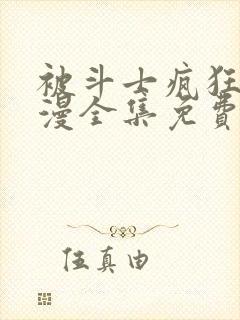 被斗士疯狂
漫全集免費
伍真由